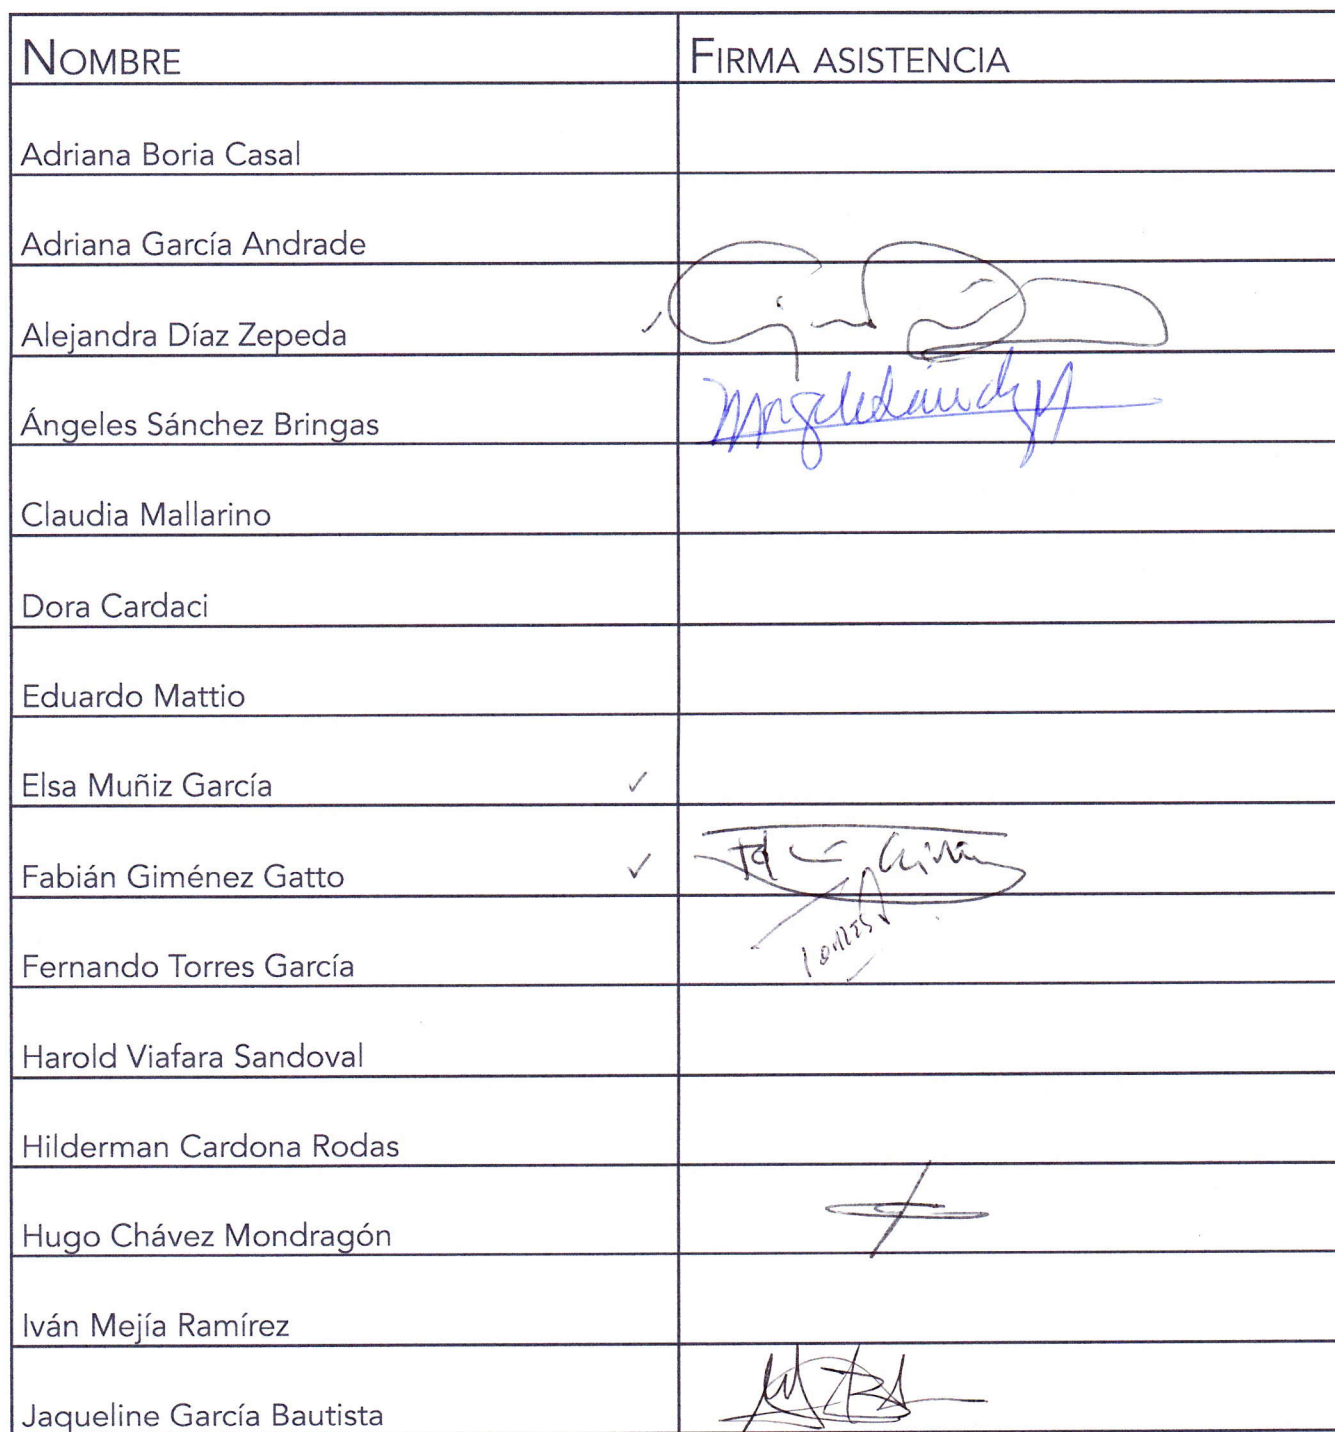 NOMBRE FIRMA ASISTENCIA
Adriana Boria Casal
Adriana García Andrade
Alejandra Díaz Zepeda
Ángeles Sánchez Bringas
Claudia Mallarino
Dora Cardaci
Eduardo Mattio
Elsa Muñiz García
Fabián Giménez Gatto
Fernando Torres García
Harold Viafara Sandoval
Hilderman Cardona Rodas
Hugo Chávez Mondragón
Iván Mejía Ramírez
Jaqueline García Bautista